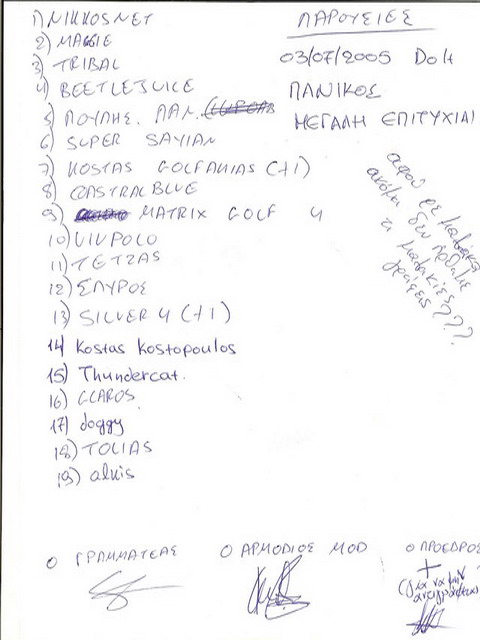 ΠΑΡΟΥΣΙΕΣ
03/07/2005 Do it
ΠΑΝΙΚΟΣ
ΜΕΓΑΛΗ ΕΠΙΤΥΧΙΑ!
1) NIKKOSNET
2) MAGGIE
3) TRIBAL
4) BEETLEJUICE
5) ΠΟΥΛΗΣ. ΠΑΝ.
6) SUPER SAYIAN
7) KOSTAS GOLFAKIAS (+1)
8) COASTRALBLUE
9) MATRIX GOLF 4
10) VIVPOLO
11) TETZAS
12) ΣΠΥΡΟΣ
13) SILVER 4 (+1)
14) Kostas Kostopoulos
15) Thundercat.
16) GLAROS
17) doggy
18) TOLIAS
19) alkis
αφού ρε μαλάκα
ακόμη δεν ήρθαμε
τι μαλακίες
γράφεις???
Ο ΓΡΑΜΜΑΤΕΑΣ
Ο ΑΡΜΟΔΙΟΣ MOD
Ο ΠΡΟΕΔΡΟΣ
+
(για να μην
αντιγράφεται)